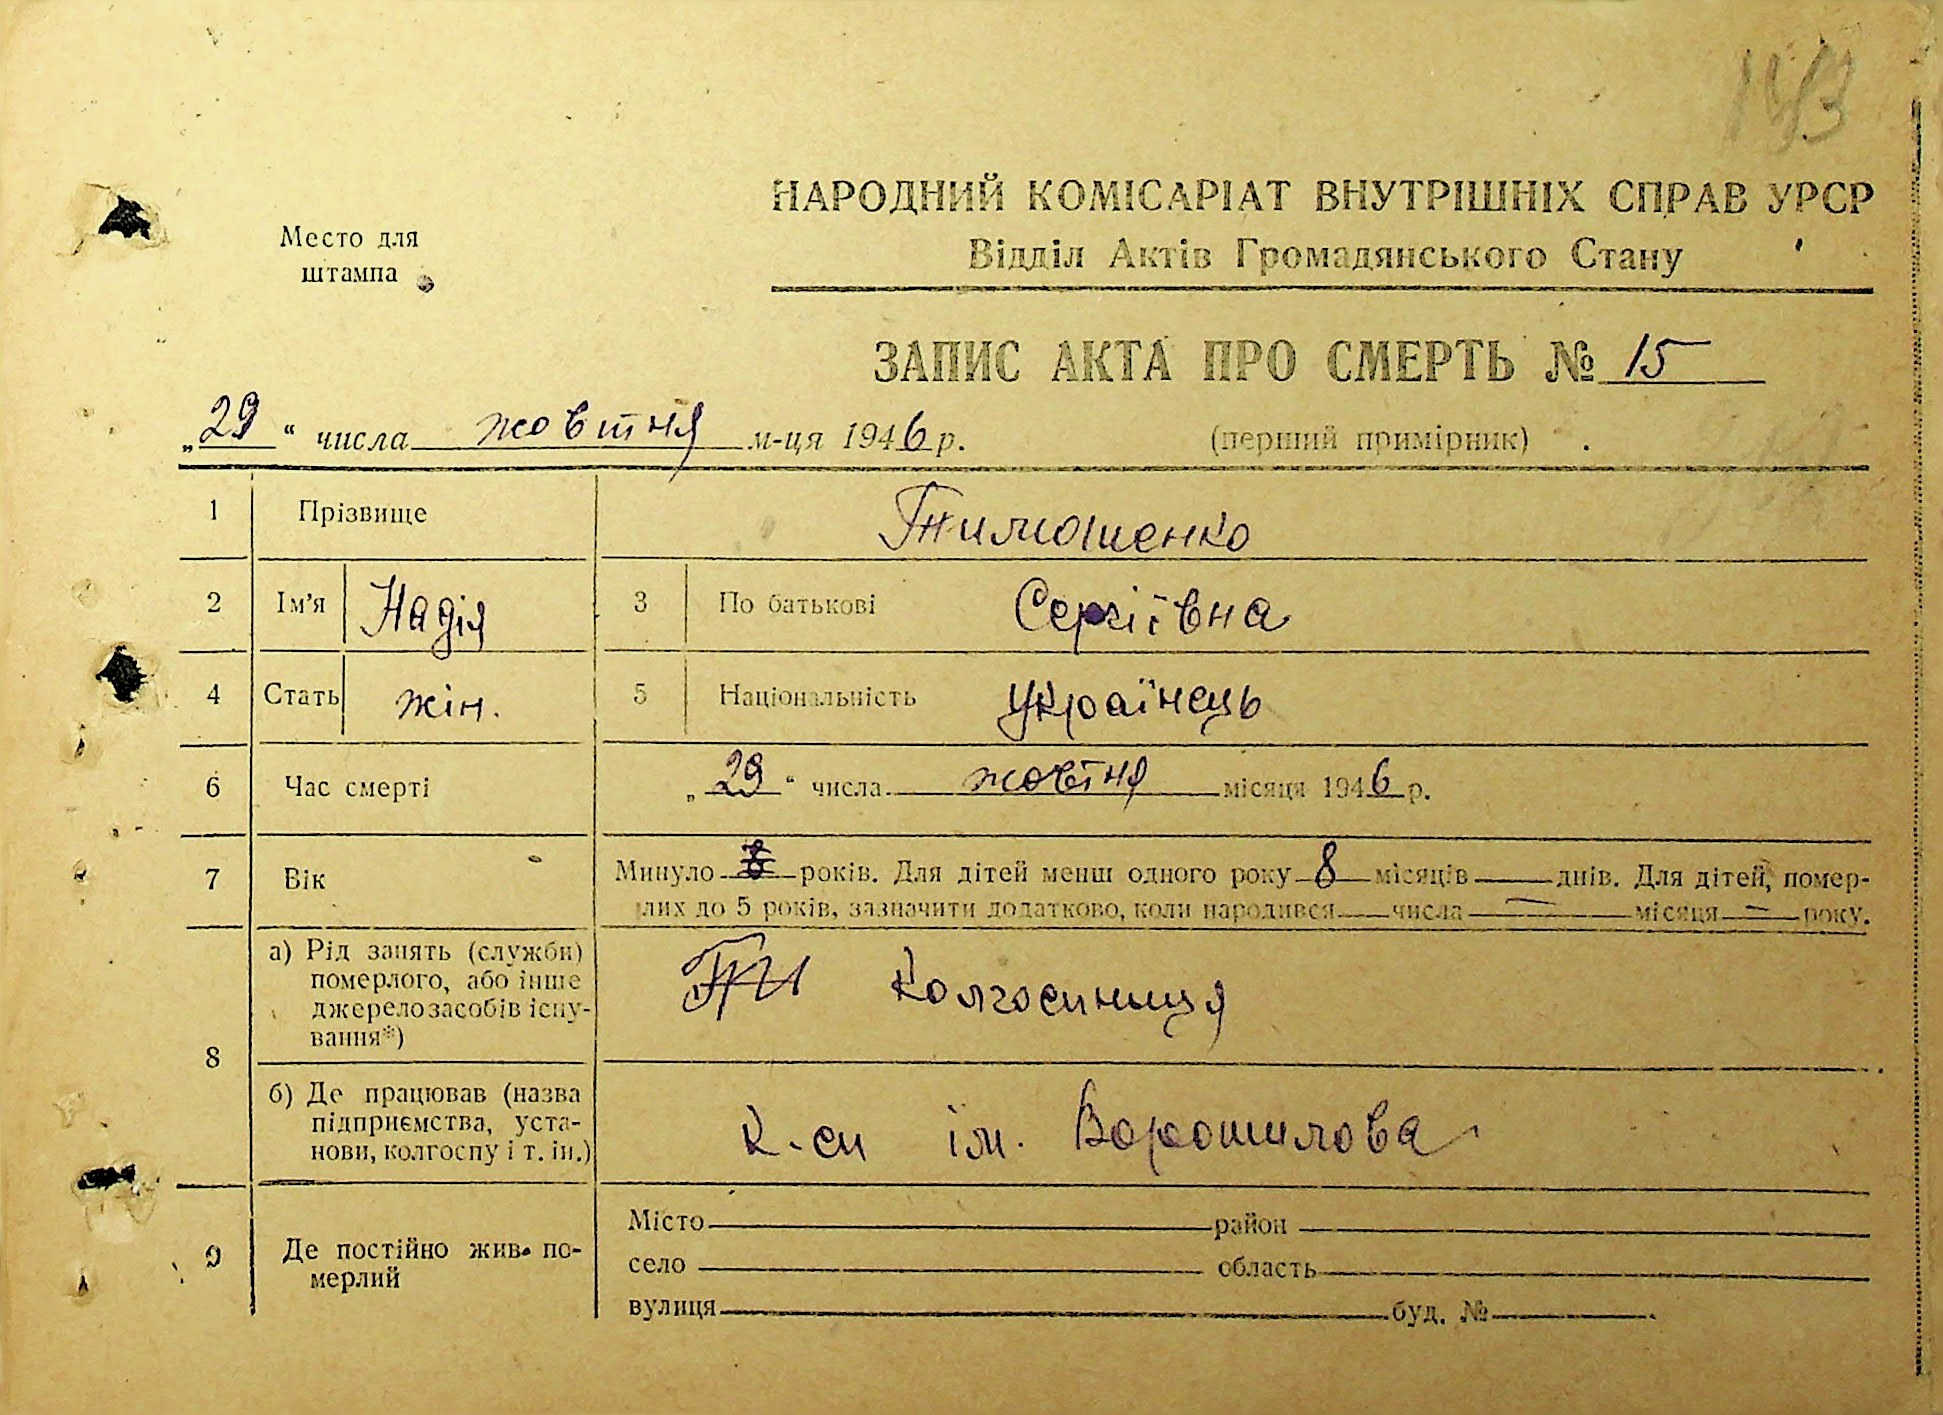 143
НАРОДНИЙ КОМІСАРІАТ ВНУТРІШНІХ СПРАВ УРСР
Відділ Актів Громадянського Стану
Место для
штампа
ЗАПИС АКТА ПРО СМЕРТЬ № 15
„29“ числа жовтня м-ця 1946 р. (перший примірник)
1 Прізвище Тимошенко
2 Ім'я Надія 3 По батькові Сергіївна
4 Стать жін. 5 Національність Українець
6 Час смерті „29“ числа жовтня місяця 1946 р.
7 Вік Минуло років. Для дітей менш одного року 8 місяців днів. Для дітей, помер-
лих до 5 років, зазначити додатково, коли народився числа — місяця — року.
8 а) Рід занять (служби)
померлого, або інше
джерело засобів існу-
вання*)
Колгоспниця
б) Де працював (назва
підприємства, уста-
нови, колгоспу і т. ін.)
к-сп ім. Ворошилова
9 Де постійно жив по-
мерлий
Місто район
село область
вулиця буд. №